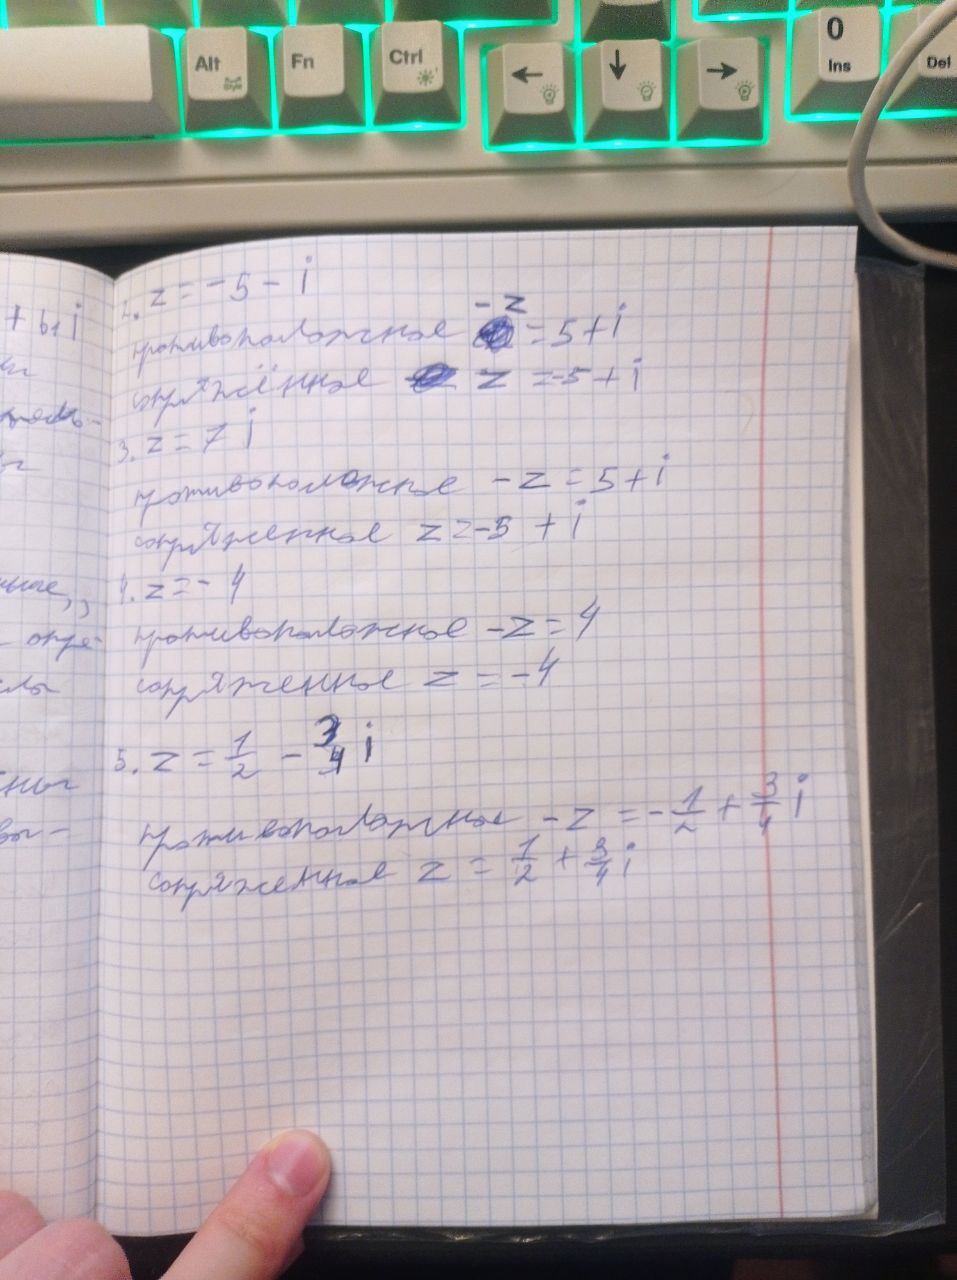 Alt
Fn
Ctrl
0
Ins
Del
+ b₁ i
2. z = -5 - i
противоположное -z = 5 + i
сопряжённое z = -5 + i
3. z = 7 i
противоположное -z = 5 + i
сопряженное z = -5 + i
4. z = -4
опре-
противоположное -z = 4
сопряженное z = -4
5. z = 1/2 - 3/4 i
противоположное -z = -1/2 + 3/4 i
сопряженное z = 1/2 + 3/4 i